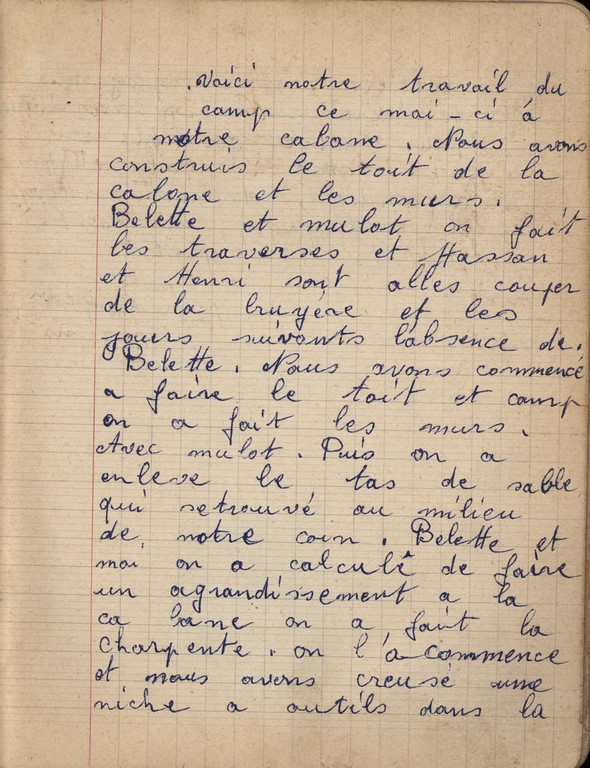 . Voici notre travail du
camp ce moi - ci á
notre cabane. Nous avons
construis le toit de la
cabane et les murs.
Belette et mulot on fait
les traverses et Hassan
et Henri sont alles couper
de la bruyére et les
jours suivants l'absence de.
Belette. Nous avons commencé
a faire le toit et camp
on a fait les murs.
Avec mulot. Puis on a
enleve le tas de sable
qui setrouvé au milieu
de notre coin. Belette et
moi on a calculé de faire
un agrandissement a la
ca bane on a fait la
charpente. on l'á commence
et nous avons creusé une
niche a outils dans la